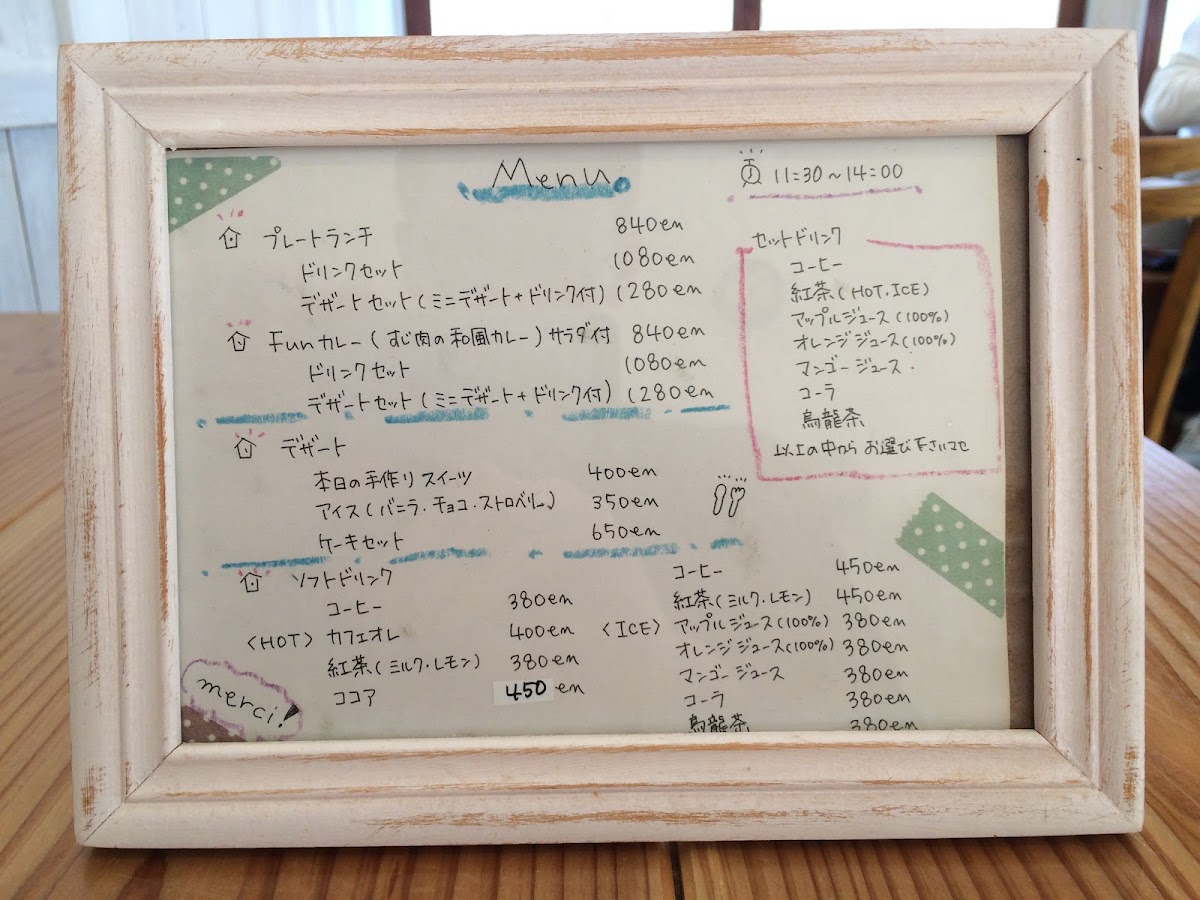 Menu
11:30～14:00
プレートランチ 840en
ドリンクセット 1080en
デザートセット(ミニデザート+ドリンク付) 1280en
Funカレー(むじ肉の和風カレー)サラダ付 840en
ドリンクセット 1080en
デザートセット(ミニデザート+ドリンク付) 1280en
セットドリンク
コーヒー
紅茶(HOT.ICE)
アップルジュース(100%)
オレンジジュース(100%)
マンゴージュース
コーラ
烏龍茶
以上の中からお選び下さいマセ
デザート
本日の手作りスイーツ 400en
アイス(バニラ・チョコ・ストロベリー) 350en
ケーキセット 650en
ソフトドリンク
<HOT>
コーヒー 380en
カフェオレ 400en
紅茶(ミルク・レモン) 380en
ココア 450en
<ICE>
コーヒー 450en
紅茶(ミルク・レモン) 450en
アップルジュース(100%) 380en
オレンジジュース(100%) 380en
マンゴージュース 380en
コーラ 380en
烏龍茶 380en
merci!